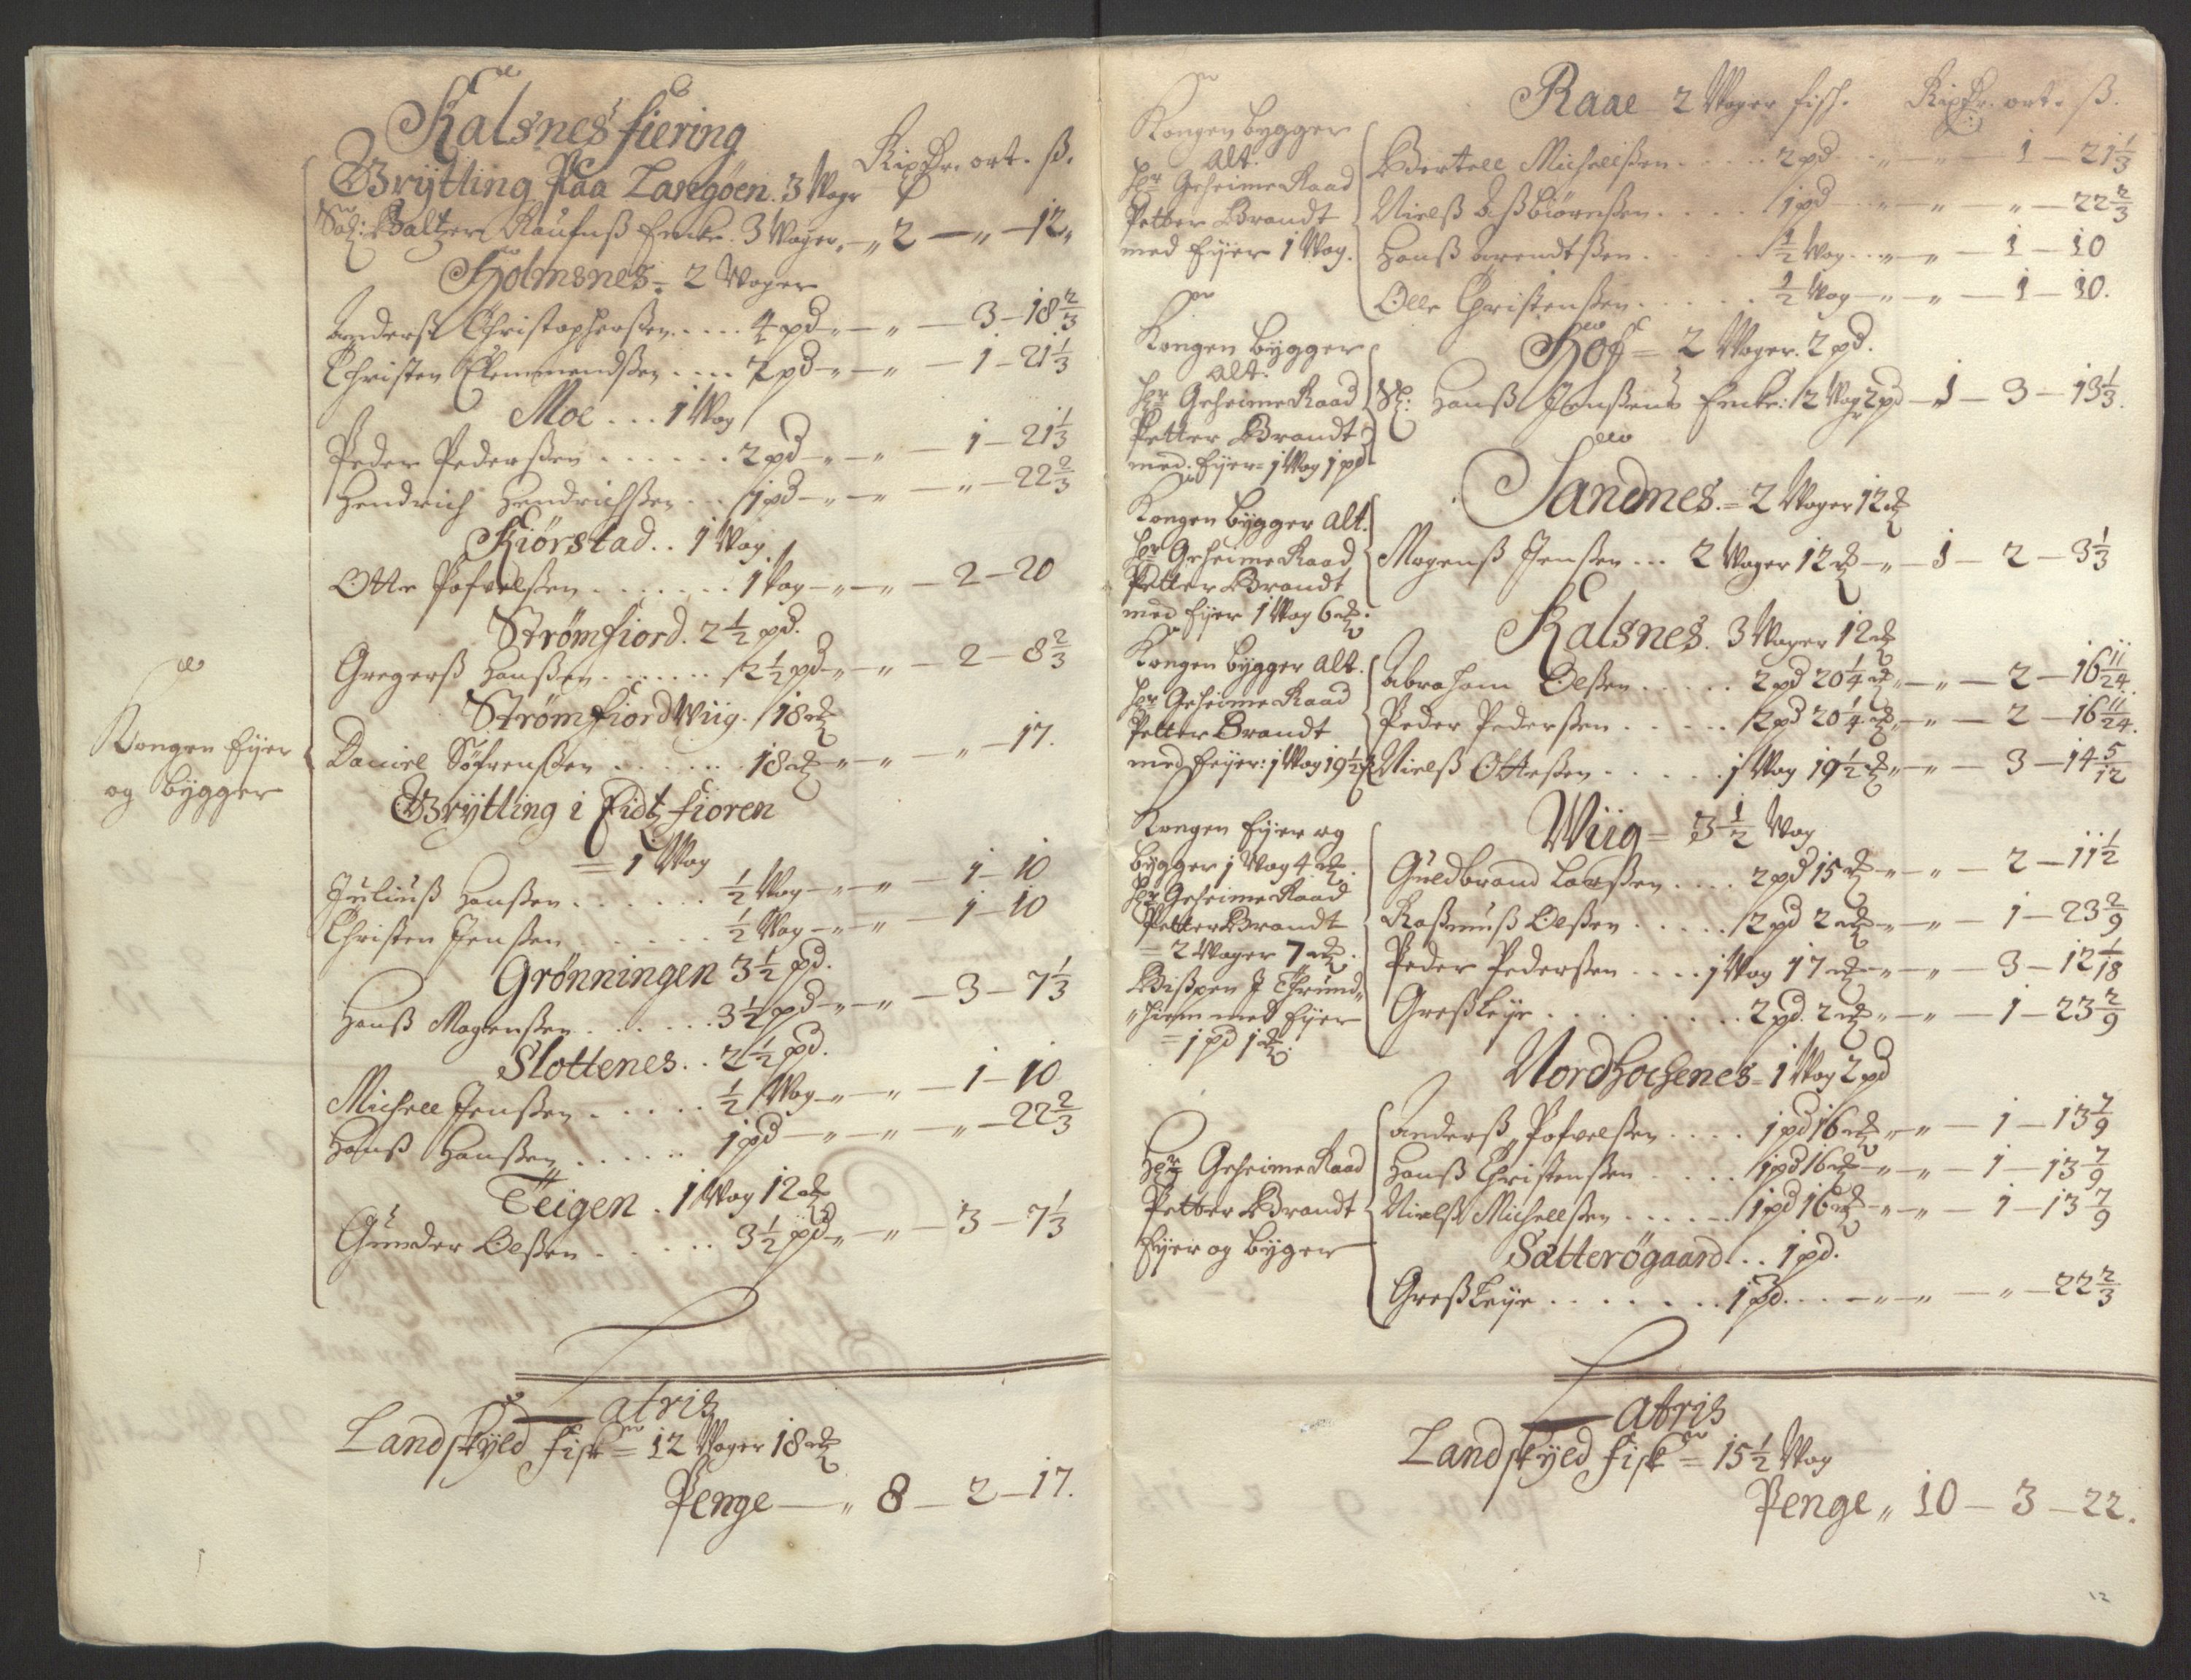 Kalsnes fiering
Rixdr. ort. ß.
Brÿtling Paa Langøen. 3 Wogr
Sal: Baltzer Raufnß Encke. 3 Woger „ — „ 2 — „ — 12 „
Holmsnes = 2 Woger
Anderß Christopherßen . . . . 4 pd — „ — „ — 3 — 18 2/3
Christen Clemmendßen . . . . 2 pd — „ — „ — 1 — 21 1/3
Moe . . . 1 Wog
Peder Pederßen . . . . . . 2 pd — „ — „ — 1 — 21 1/3
Hendrich Hendrichßen . . . 1 pd — „ — „ — „ — 22 2/3
Kiørstad . . 1 Wog.
Otte Pofvelßen . . . . . . . 1 Wog — „ — „ — 2 — 20
Strømfiord. 2 1/2 pd.
Gregerß Hanßen . . . . . . 2 1/2 pd — „ — „ — 2 — 8 2/3
StrømfiordWiig. 18 ℔
Kongen Eÿer
og bÿgger
Daniel Søfrenßen . . . . . . 18 ℔ — „ — „ — „ — 17.
Brÿtling i Eidtzfioren
= 1 Wog
Juliuß Hanßen . . . . . . 1/2 Wog — „ — „ — 1 — 10
Christen Jenßen . . . . . . 1/2 Wog — „ — „ — 1 — 10
Grønningen 3 1/2 pd.
Hanß Mogenßen . . . . . . 3 1/2 pd — „ — „ — 3 — 7 1/3
Slottenes . . 2 1/2 pd.
Michell Jenßen . . . . . 1/2 Wog — „ — „ — 1 — 10
Hanß Hanßen . . . . . . 1 pd — „ — „ — „ — 22 2/3
Teigen . 1 Wog 12 ℔
Gunder Olßen . . . . . . 3 1/2 pd „ — „ — 3 — 7 1/3
Latris
Landskÿld fisk = 12 Woger 18 ℔
Penge — „ 8 — 2 — 17.
Raae — 2 Woger fisk. Rixdr. ort. ß.
Kongen bygger
alt.
Hr: Geheime Raad
Petter Brandt
med Eÿer 1 Wog.
Bertell Michelßen . . . . . 2 pd . . „ — „ — 1 — 21 1/3
Nielß Aßbiørnßen . . . . 1 pd — „ — „ — „ — 22 2/3
Hanß Arendtßen . . . . . 1/2 Wog . . „ — „ — 1 — 10
Olle Christenßen . . . . . . 1/2 Wog — „ — „ — 1 — 10.
Hof = 2 Woger. 2 pd.
Kongen bÿgger
alt.
Hr: Geheime Raad
Petter Brandt
med. Eÿer = 1 Wog 1 pd
Sl: Hanß Jenßens Encke: 2 Wogr 2 pd — „ 1 — 3 — 13 1/3.
Sandnes. = 2 Woger 12 ℔
Kongen bÿgger alt.
Hr: Geheime Raad
Petter Brandt
med Eÿer 1 Wog 6 ℔.
Mogenß Jenßen . . . 2 Woger 12 ℔ — „ — 1 — 2 — 3 1/3
Kalsnes. 3 Woger 12 ℔
Kongen bygger alt.
Hr: Geheime Raad
Petter Brandt
med Eÿer: 1 Wog 19 1/2 ℔
Abraham Olßen . . . . . 2 pd 20 1/4 ℔ „ — „ — 2 — 16 11/24.
Peder Pederßen . . . . . . 2 pd 20 1/4 ℔ „ — „ — 2 — 16 11/24.
Nielß Otteßen . . . . . 1 Wog 19 1/2 ℔ „ — „ — 3 — 14 5/12
Wiig = 3 1/2 Wog
Kongen Eÿer og
bÿgger 1 Wog 4 ℔.
Hr: Geheime Raad
Petter Brandt
= 2 Woger 7 ℔.
Bißpen J Thrund„
„hiem med Eÿer
= 1 pd 1 ℔.
Guldbrand Larßen . . . . 2 pd 15 ℔ — „ — „ — 2 — 11 1/2
Raßmuß Olßen . . . . . 2 pd 2 ℔ — „ — „ — 1 — 23 2/9
Peder Pederßen . . . . 1 Wog 17 ℔ — „ — „ — 3 — 12 1/18
Greßleÿe . . . . . . . . . 2 pd. 2 ℔ „ — „ — 1 — 23 2/9
Nordhochenes = 1 Wog 2 pd
Hr: Geheime Raad
Petter Brandt
Eÿer og bÿger
Anderß Pofvelßen . . . . 1 pd 16 ℔ „ — „ — 1 — 13 7/9
Hanß Christenßen . . . . 1 pd 16 ℔ — „ — „ — 1 — 13 7/9
Nielß Michelßen . . . . . 1 pd 16 ℔ — „ — „ — 1 — 13 7/9
Sætterøgaard . . 1 pd.
Greßleÿe . . . . . . . . 1 pd. . . — „ — „ — „ — 22 2/3
Latris
Landskÿld fisk = 15 1/2 Wog
Penge „ 10 — 3 — 22.
12